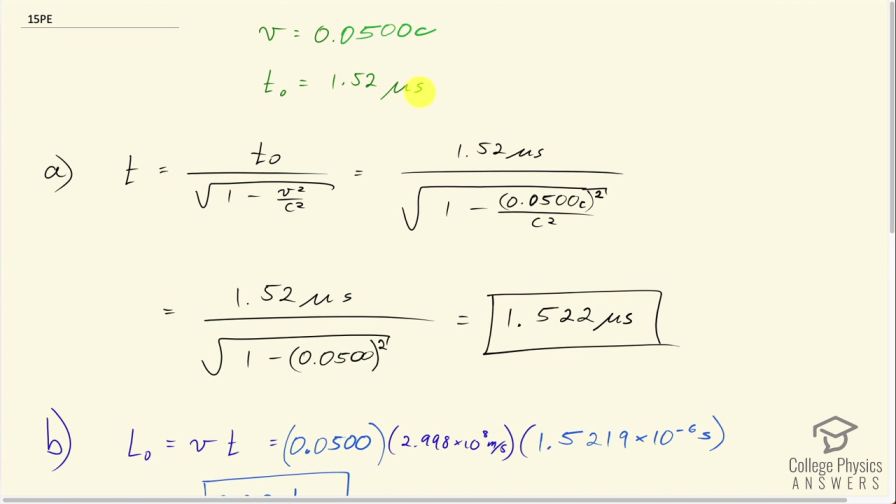 15PE
v = 0.0500c
t₀ = 1.52 μs
a) t = t₀ / √(1 - v²/c²) = 1.52 μs / √(1 - (0.0500c)²/c²)
= 1.52 μs / √(1 - (0.0500)²) = 1.522 μs
b) L₀ = v t = (0.0500)(2.998×10⁸ m/s)(1.5219×10⁻⁶ s)
College Physics
ANSWERS